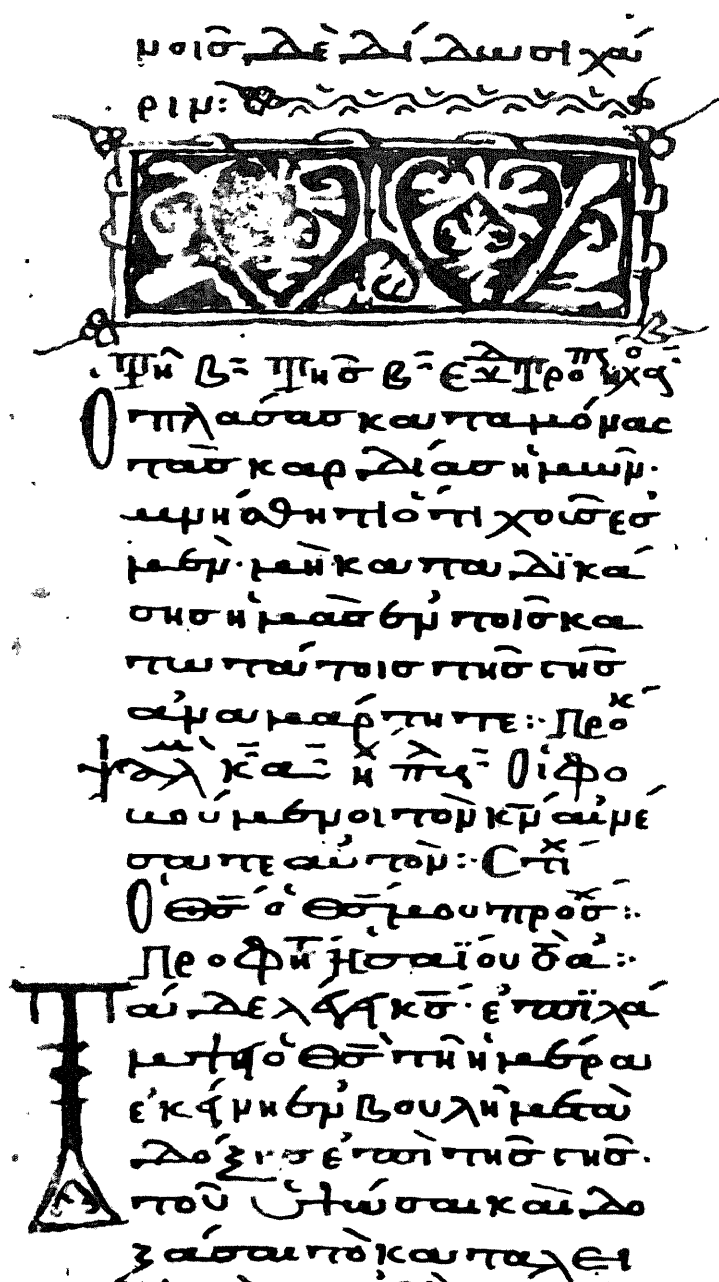 μοις δὲ δίδωσι χά
ριν:
Τῆ β̅ τῆς β̅ ἑβδ τροπ ἦχος
Ὁ πλάσας καταμόνας
τὰς καρδίας ἡμῶν·
μνήσθητι ὅτι χοῦς ἐσ
μεν· μὴ καταδϊκά
σης ἡμᾶς ἐν τοῖς κα
τωτάτοις τῆς γῆς
ἀναμάρτητε:· Προκ
ψαλμ κ̅α̅ ἦχ πλ Οἱ φο
βούμενοι τὸν κ̅ν̅ αἰνέ
σατε αὐτόν:· Στίχ
Ὁ θ̅ς̅ ὁ θ̅ς̅ μου πρόσχ:·
Προφητ Ἠσαΐου
Τάδε λέγει κ̅ς̅· ἐπϊλά
μψει ὁ θ̅ς̅ τῆ ἡμέρα
ἐκείνη ἐν βουλῆ μετὰ
δόξης ἐπὶ τῆς γῆς·
τοῦ ὑψῶσαι καὶ δο
ξάσαι τὸ καταλει